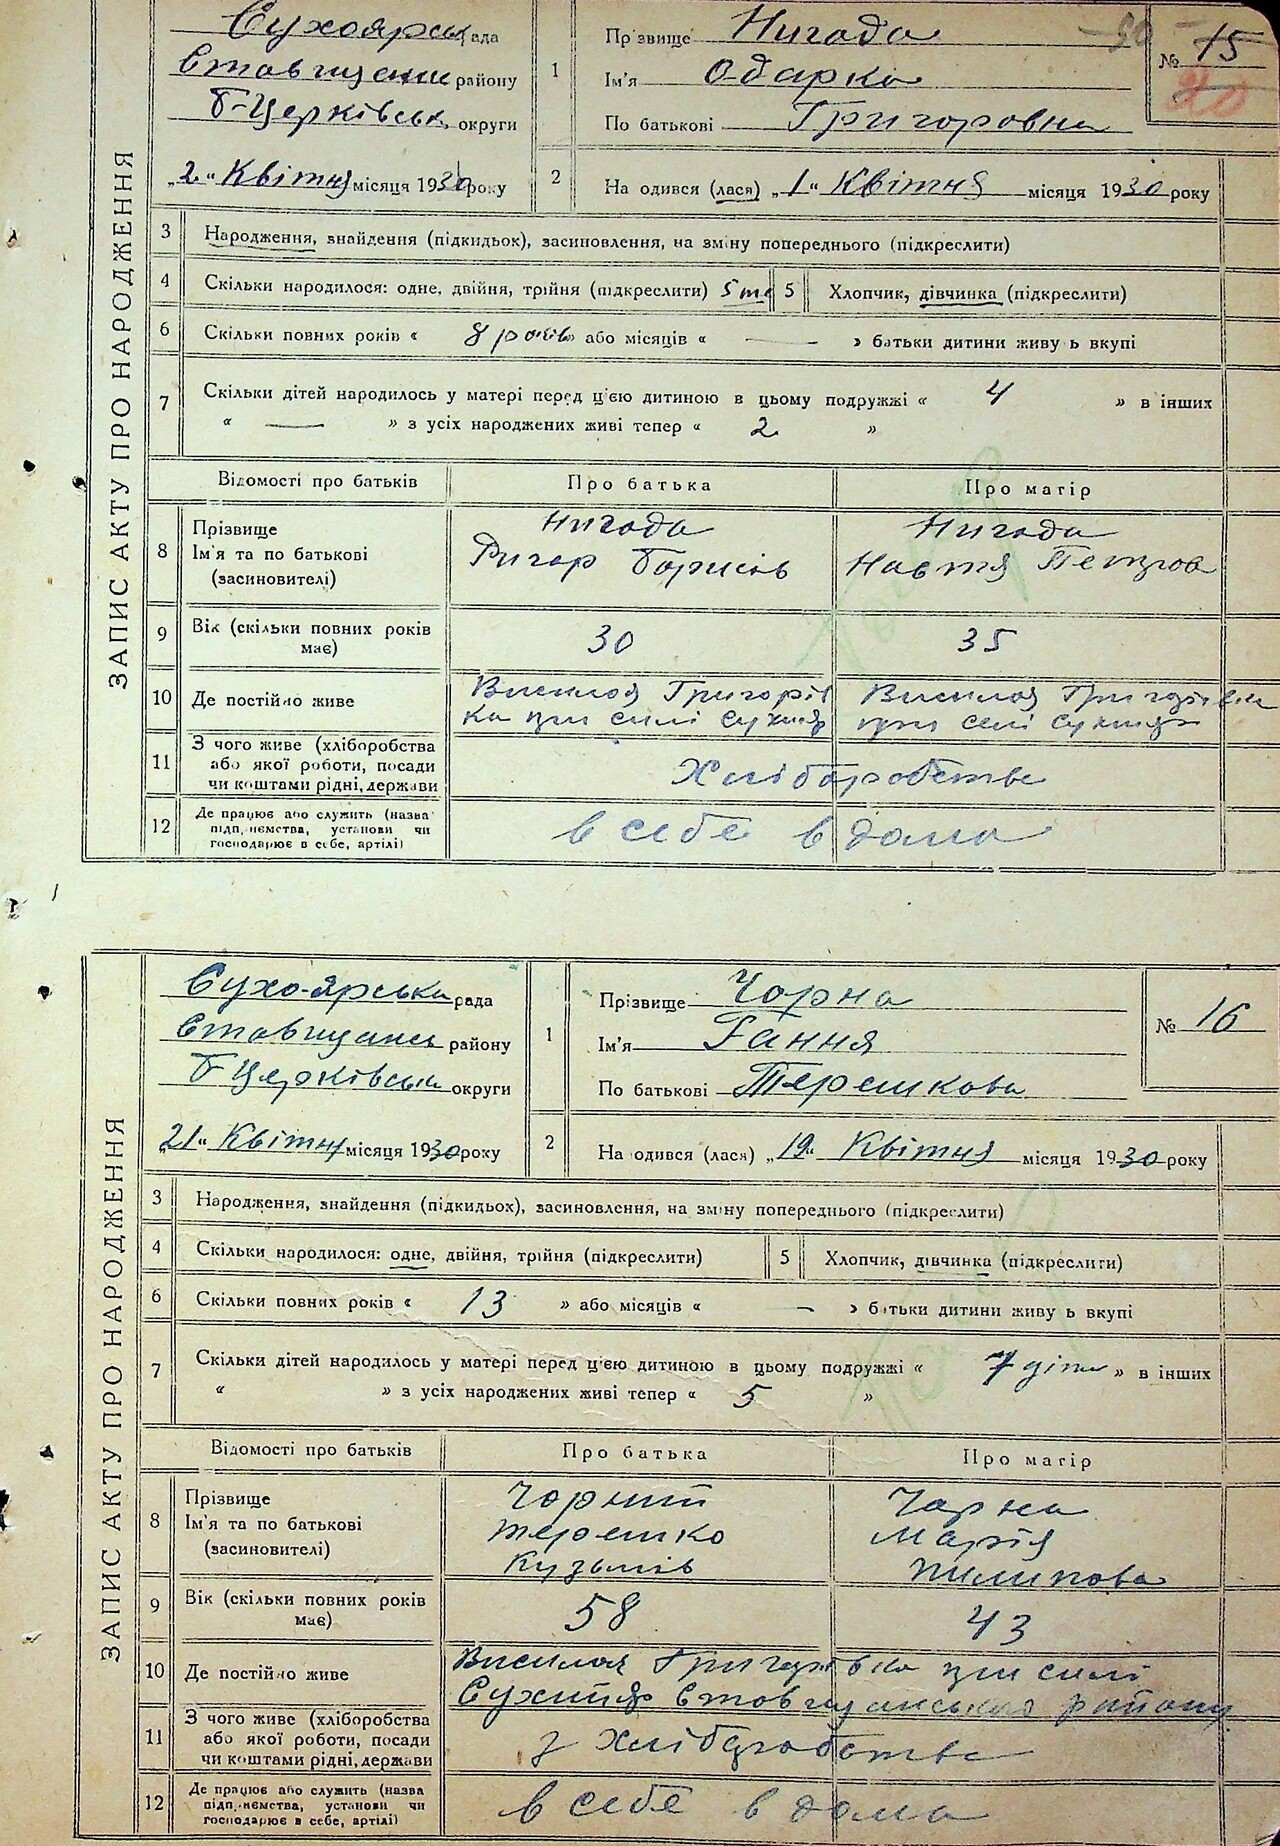 ЗАПИС АКТУ ПРО НАРОДЖЕННЯ
Сухоярськ рада
Ставищанс району
Б-Церківськ округи
„2“ Квітня місяця 1930 року
1 Прізвище Нигода
Ім'я Одарка
По батькові Григоровна
№ 15
20
2 На одився (лася) „1“ Квітня місяця 1930 року
3 Народження, знайдення (підкидьок), засиновлення, на зміну попереднього (підкреслити)
4 Скільки народилося: одне, двійня, трійня (підкреслити) 5те 5 Хлопчик, дівчинка (підкреслити)
6 Скільки повних років « 8 років » або місяців « — » батьки дитини живу ь вкупі
7 Скільки дітей народилось у матері перед ц'єю дитиною в цьому подружжі « 4 » в інших
« — » з усіх народжених живі тепер « 2 »
Відомості про батьків Про батька Про матір
8 Прізвище Нигода Нигода
Ім'я та по батькові Ригор Борисів Настя Петрова
(засиновителі)
9 Вік (скільки повних років має) 30 35
10 Де постійно живе Висилоя Григорів Висилоя Григорівка
ка при силі Сухияр при селі Сухияр
11 З чого живе (хліборобства
або якої роботи, посади Хліборобства
чи коштами рідні, держави
12 Де працює або служить (назва
підп.иємства, установи чи в себе в дома
господарює в себе, артілі)
ЗАПИС АКТУ ПРО НАРОДЖЕННЯ
Сухо-Ярська рада
Ставищансь району
Б-Церківська округи
„21“ Квітня місяця 1930 року
1 Прізвище Чорна
Ім'я Гання
По батькові Терешкова
№ 16
2 На одився (лася) „19“ Квітня місяця 1930 року
3 Народження, знайдення (підкидьох), засиновлення, на зміну попереднього (підкреслити)
4 Скільки народилося: одне, двійня, трійня (підкреслити) 5 Хлопчик, дівчинка (підкреслити)
6 Скільки повних років « 13 » або місяців « — » батьки дитини живу ь вкупі
7 Скільки дітей народилось у матері перед ц'єю дитиною в цьому подружжі « 7 діти » в інших
« » з усіх народжених живі тепер « 5 »
Відомості про батьків Про батька Про матір
8 Прізвище Чорний Чорна
Ім'я та по батькові Терешко Марія
(засиновителі) Кузьмів Пилипова
9 Вік (скільки повних років має) 58 43
10 Де постійно живе Висилоя Григорівка при силі
Сухийяр Ставищанського району
11 З чого живе (хліборобства
або якої роботи, посади з Хліборобства
чи коштами рідні, держави
12 Де працює або служить (назва
підп.иємства, установи чи в себе в дома
господарює в себе, артілі)